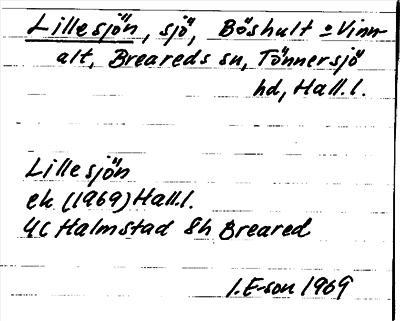 Lillesjön, sjö, Böshult o Vinn-
alt, Breareds sn, Tönnersjö
hd, Hall.l.
Lillesjön
ek (1969) Hall.l.
4C Halmstad 8h Breared
I.E-son 1969